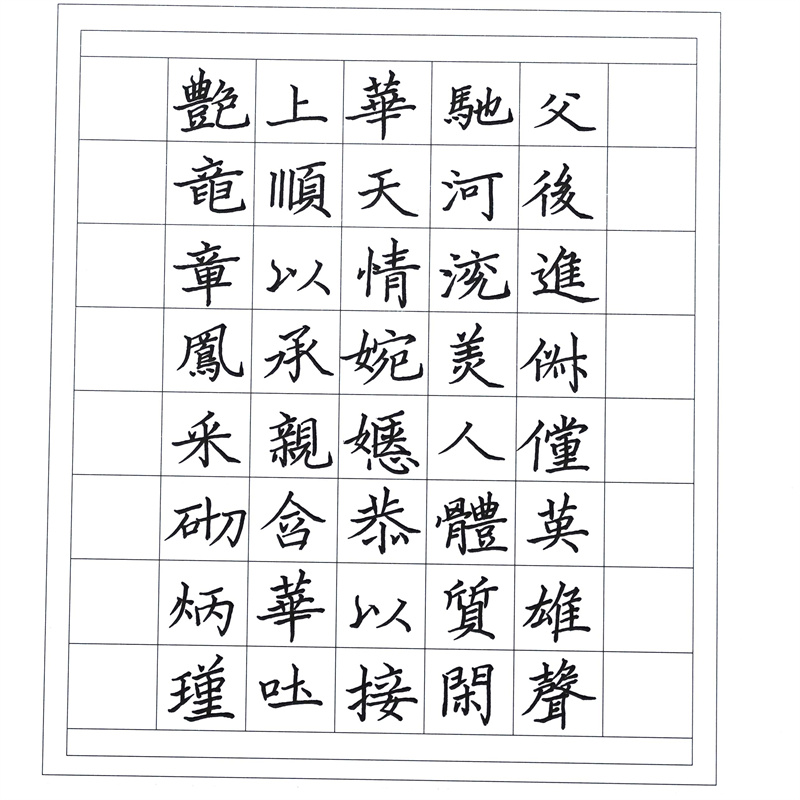 父後進俶儻英雄聲
馳河流美人體質閑
華天情婉嫕恭以接
上順以承親含華吐
艶竜章鳳采砌炳瑾